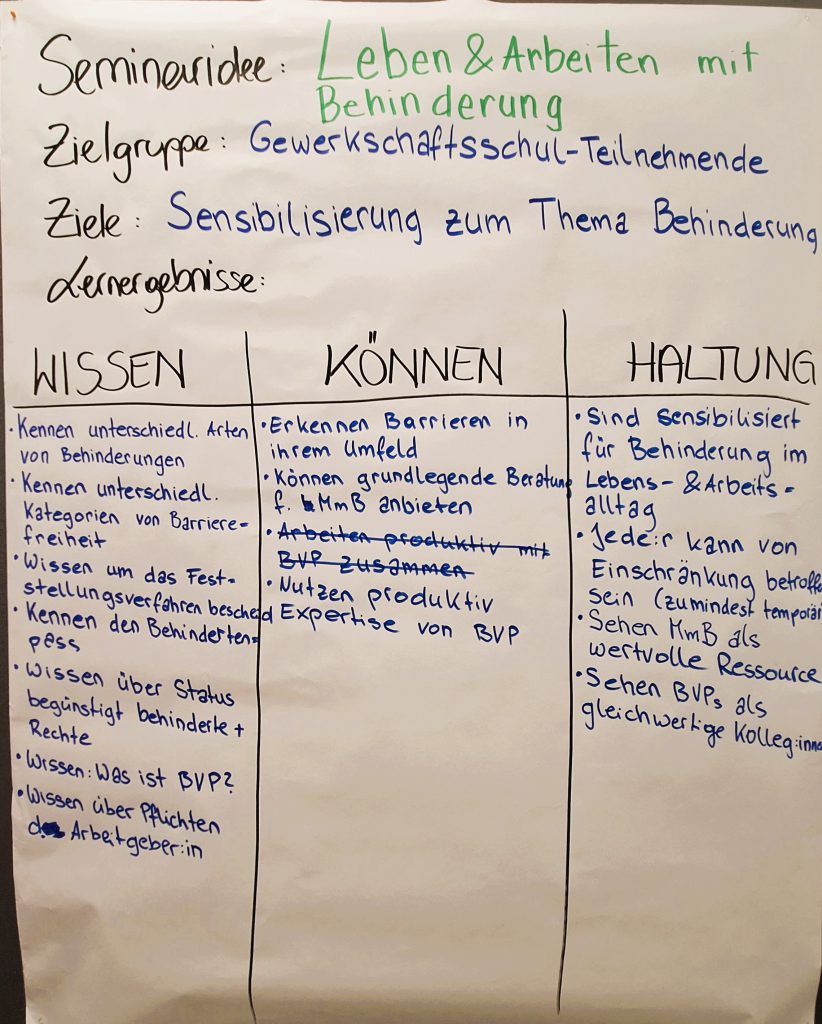 Seminaridee: Leben & Arbeiten mit
Behinderung
Zielgruppe: Gewerkschaftsschul-Teilnehmende
Ziele: Sensibilisierung zum Thema Behinderung
Lernergebnisse:
WISSEN
• Kennen unterschiedl. Arten
von Behinderungen
• Kennen unterschiedl.
Kategorien von Barriere-
freiheit
• Wissen um das Fest-
stellungsverfahren bescheid
• Kennen den Behinderten-
pass
• Wissen über Status
begünstigt behinderte +
Rechte
• Wissen: Was ist BVP?
• Wissen über Pflichten
Arbeitgeber:in
KÖNNEN
• Erkennen Barrieren in
ihrem Umfeld
• Können grundlegende Beratung
f. MmB anbieten
• Arbeiten produktiv mit
BVP zusammen
• Nutzen produktiv
Expertise von BVP
HALTUNG
• Sind sensibilisiert
für Behinderung im
Lebens- & Arbeits-
alltag
• Jede:r kann von
Einschränkung betroffe
sein (zumindest temporär
• Sehen MmB als
wertvolle Ressource
• Sehen BVPs als
gleichwertige Kolleg:inne